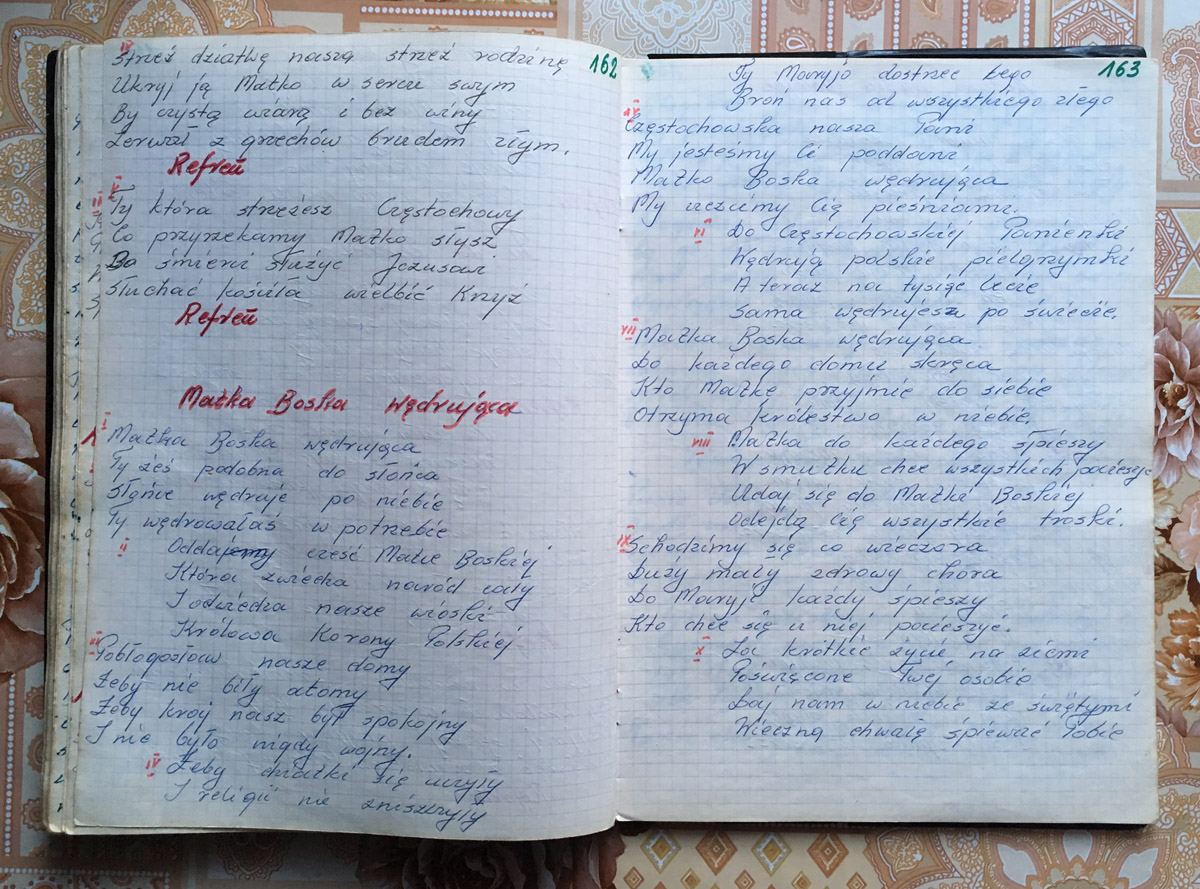 162
IV
Strzeż dziatwę naszą strzeż rodzinę
Ukryj ją Matko w sercu swym
By czystą wiarą i bez winy
Zerwać z grzechów brudem złym.
Refreń
V
Ty która strzeżesz Częstochowy
Co przyrzekamy Matko słysz
Do śmierci służyć Jezusowi
Słuchać kościła wielbić Krzyż
Refreń
Matka Boska Wędrująca
I
Matka Boska wędrująca
Ty żeś podobna do słońca
Słońce wędruje po niebie
Ty wędrowałaś w potrzebie
II Oddaj cześć Matce Boskiej
Która zwiedza naród cały
I odwiedza nasze wioski
Królowa Korony Polskiej
III
Pobłogosław nasze domy
Żeby nie biły atomy
Żeby kraj nasz był spokojny
I nie było nigdy wojny.
IV Żeby dziatki się uczyły
I religii nie zniszczyły
163
Ty Maryjo dostrzec tego
Broń nas od wszystkiego złego
V
Częstochowska nasza Pani
My jesteśmy Ci poddani
Matko Boska wędrująca
My uczcimy Cię pieśniami.
VI Do Częstochowskiej Panienki
Wędrują polskie pielgrzymki
A teraz na tysiąc lecie
Sama wędrujesz po świecie.
VII Matka Boska wędrująca
Do każdego domu skręca
Kto Matkę przyjmie do siebie
Otrzyma królestwo w niebie.
VIII Matka do każdego śpieszy
W smutku chce wszystkich pocieszyć
Udaj się do Matki Boskiej
Odejdą Cię wszystkie troski.
IX
Schodzimy się co wieczora
Duży mały zdrowy chora
Do Maryje każdy śpieszy
Kto chce się u niej pocieszyć.
X Za krótkie życie na ziemi
Poświęcone Twej osobie
Daj nam w niebie ze świętymi
Wieczną chwałę śpiewać Tobie